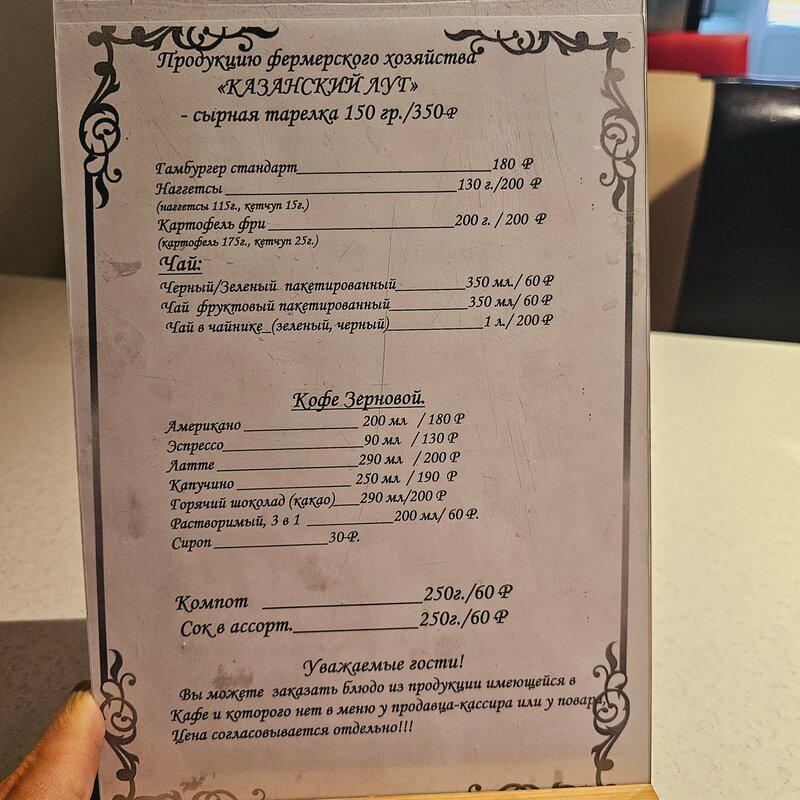 Продукцию фермерского хозяйства
«КАЗАНСКИЙ ЛУГ»
- сырная тарелка 150 гр./350₽
Гамбургер стандарт____180 ₽
Наггетсы____130 г./200 ₽
(наггетсы 115г., кетчуп 15г.)
Картофель фри____200 г. / 200 ₽
(картофель 175г., кетчуп 25г.)
Чай:
Черный/Зеленый пакетированный____350 мл./ 60 ₽
Чай фруктовый пакетированный____350 мл/ 60 ₽
Чай в чайнике (зеленый, черный)____1 л./ 200 ₽
Кофе Зерновой.
Американо____200 мл / 180 ₽
Эспрессо____90 мл / 130 ₽
Латте____290 мл / 200 ₽
Капучино____250 мл / 190 ₽
Горячий шоколад (какао)____290 мл/200 ₽
Растворимый, 3 в 1____200 мл/ 60 ₽.
Сироп____30 ₽.
Компот____250г./60 ₽
Сок в ассорт.____250г./60 ₽
Уважаемые гости!
Вы можете заказать блюдо из продукции имеющейся в
Кафе и которого нет в меню у продавца-кассира или у повара.
Цена согласовывается отдельно!!!